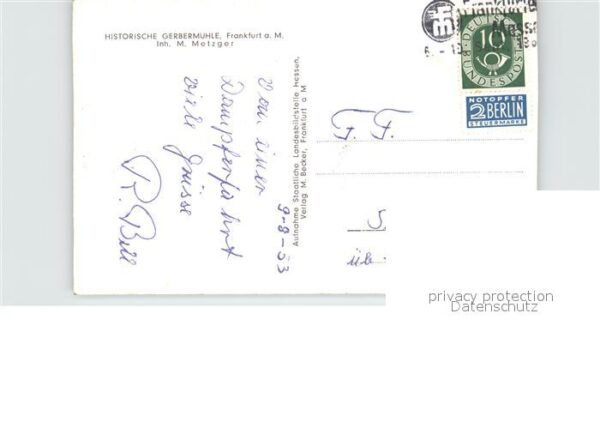 HISTORISCHE GERBERMÜHLE, Frankfurt a. M.
Inh. M. Metzger
Von einer
Dampferfahrt
viele Grüsse
R. Bill
9-8-53
Aufnahme Staatliche Landesbildstelle Hessen,
Verlag M. Becker, Frankfurt a M.
F. F.
Frankfurter
Messe
6 -
DEUTSCHE
10
BUNDESPOST
NOTOPFER
2 BERLIN
STEUERMARKE
S
üb.
privacy protection
Datenschutz